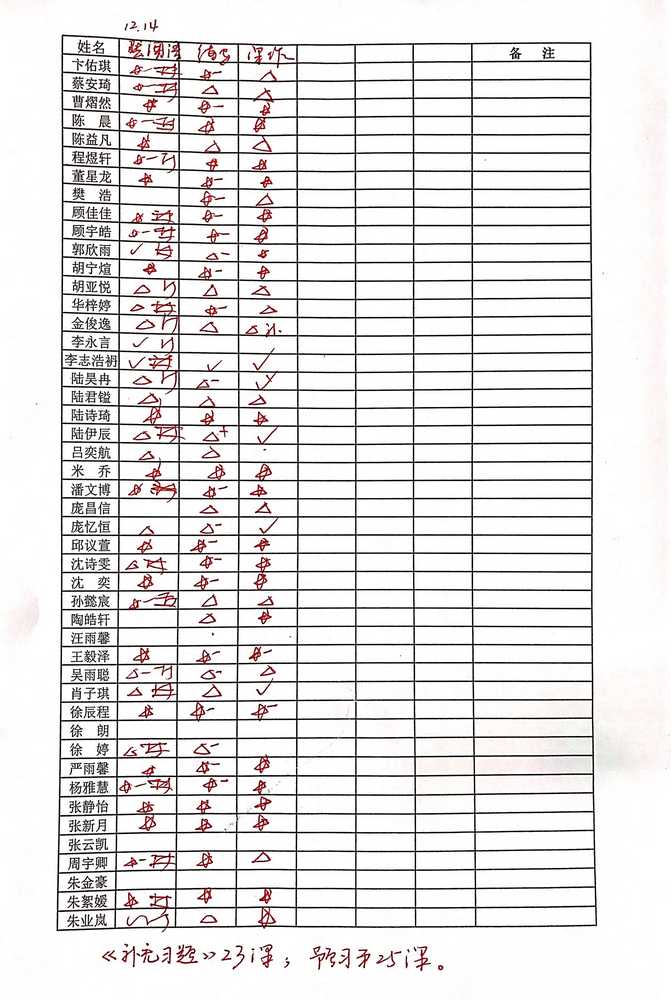 12.14
姓名 缩写 课作 备 注
卞佑琪 ☆- △
蔡安琦 △ △
曹熠然 ☆ ☆- ☆
陈 晨 ☆ ☆
陈益凡 ☆ △ △
程煜轩 ☆ ☆
董星龙 ☆ ☆- ☆
樊 浩 ☆- △
顾佳佳 ☆ ☆- ☆
顾宇皓 ☆- ☆
郭欣雨 ✓ △- ☆
胡宁煊 ☆ ☆- ☆
胡亚悦 △ △ △
华梓婷 △ ☆- △
金俊逸 △ △ △
李永言 ✓
李志浩 ✓ ✓ ✓
陆昊冉 △ △- ✓
陆君镒 △ △ △
陆诗琦 ☆ ☆ ☆
陆伊辰 △ △+ ✓
吕奕航 △ △ ·
米 乔 ☆ ☆ ☆
潘文博 ☆ ☆- ☆
庞昌信 △ △
庞忆恒 △ △- ✓
邱议萱 ☆ ☆- ☆
沈诗雯 △ ☆- ☆
沈 奕 ☆ ☆- ☆
孙懿宸 ☆- △ △
陶皓轩 △ ☆
汪雨馨 ·
王毅泽 ☆ ☆- ☆-
吴雨聪 △- △- △
肖子琪 △ △ ✓
徐辰程 ☆ ☆- ☆-
徐 朗
徐 婷 △ △-
严雨馨 ☆ ☆- ☆
杨雅慧 ☆- ☆- ☆
张静怡 ☆ ☆ ☆
张新月 ☆ ☆ ☆
张云凯
周宇卿 ☆- ☆ △
朱金豪
朱絮媛 ☆ ☆ ☆
朱业岚 △ ☆
《补充习题》23课；预习第25课。